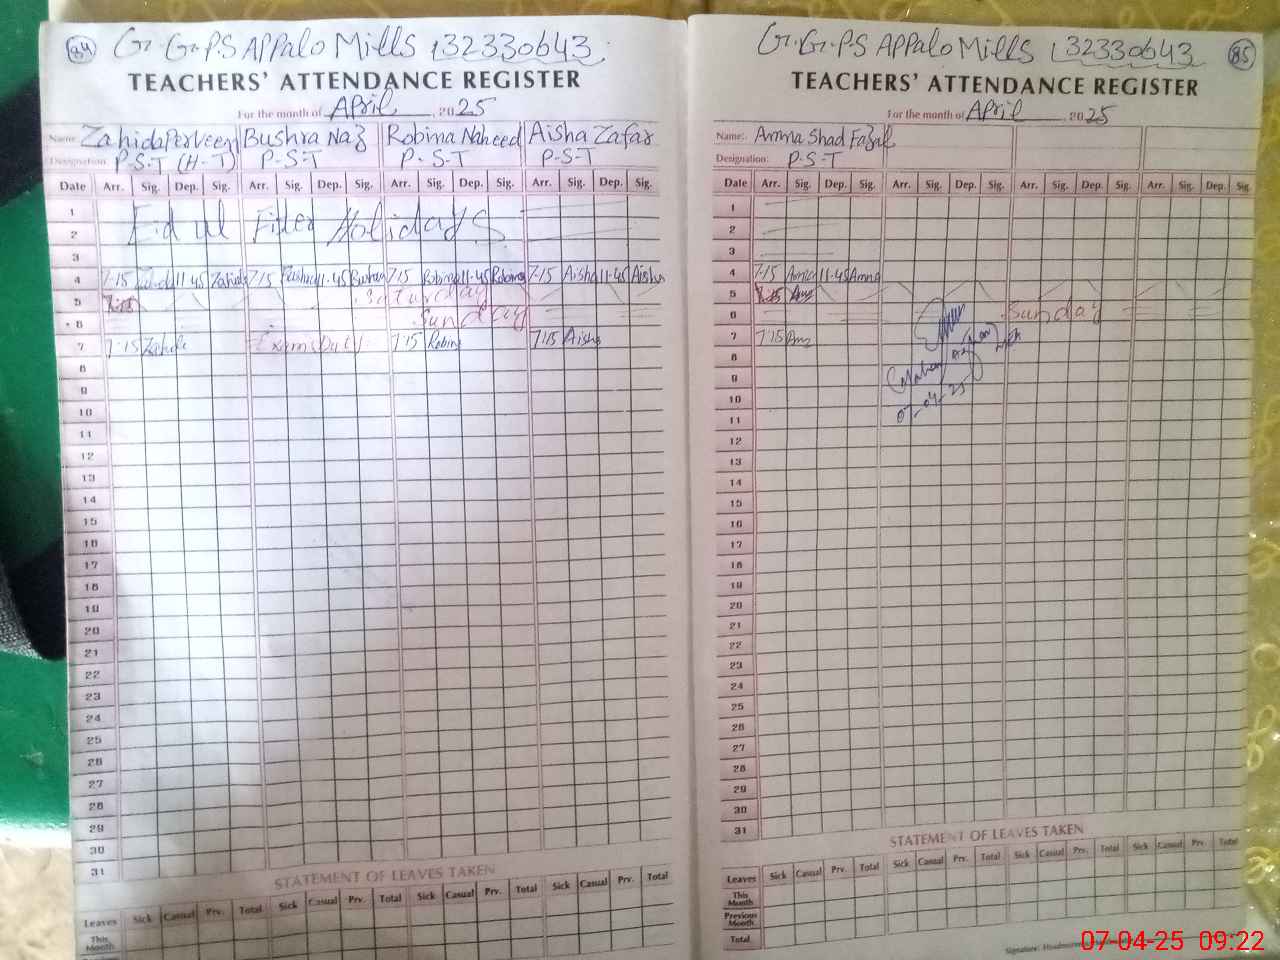 84 G.G.P.S APPalo Mills 132330643
TEACHERS' ATTENDANCE REGISTER
For the month of April 2025
Name: Zahida Perveen Bushra Naz Robina Naheed Aisha Zafar
Designation: P-S-T (H-T) P-S-T P-S-T P-S-T
Date Arr. Sig. Dep. Sig. Arr. Sig. Dep. Sig. Arr. Sig. Dep. Sig. Arr. Sig. Dep. Sig.
1
2 Eid ul Fiter Holidays
3
4 7-15 Zahida 11-45 Zahida 7-15 Bushra 11-45 Bushra 7-15 Robina 11-45 Robina 7-15 Aisha 11-45 Aisha
5 Saturday
6 Sunday
7 7-15 Zahida Exams Duty 7-15 Robina 7-15 Aisha
8
9
10
11
12
13
14
15
16
17
18
19
20
21
22
23
24
25
26
27
28
29
30
31
STATEMENT OF LEAVES TAKEN
Leaves Sick Casual Prv. Total Sick Casual Prv. Total Sick Casual Prv. Total Sick Casual Prv. Total
This Month
G.G.P.S APPalo Mills 132330643 85
TEACHERS' ATTENDANCE REGISTER
For the month of April 2025
Name: Amna Shad Fazal
Designation: P-S-T
Date Arr. Sig. Dep. Sig. Arr. Sig. Dep. Sig. Arr. Sig. Dep. Sig. Arr. Sig. Dep. Sig.
1
2
3
4 7-15 Amna 11-45 Amna
5
6 Sunday
7 7-15
8
9
10
11
12
13
14
15
16
17
18
19
20
21
22
23
24
25
26
27
28
29
30
31
STATEMENT OF LEAVES TAKEN
Leaves Sick Casual Prv. Total Sick Casual Prv. Total Sick Casual Prv. Total Sick Casual Prv. Total
This Month
Previous Month
Total
07-04-25 09:22